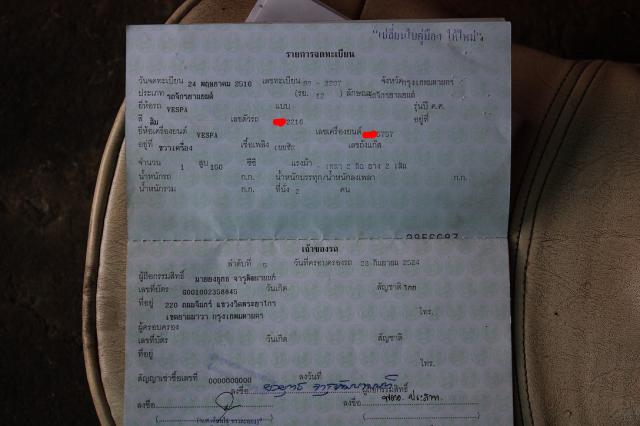 "เปลี่ยนใบคู่มือฯ ให้ใหม่"
รายการจดทะเบียน
วันจดทะเบียน 24 พฤษภาคม 2516 เลขทะเบียน - 3207 จังหวัดกรุงเทพมหานคร
ประเภท รถจักรยานยนต์ (รย. 12 ) ลักษณะ รถจักรยานยนต์
ยี่ห้อรถ VESPA แบบ รุ่นปี ค.ศ.
สี ส้ม เลขตัวรถ 2216 อยู่ที่
ยี่ห้อเครื่องยนต์ VESPA เลขเครื่องยนต์ 5757
อยู่ที่ ขวาเครื่อง เชื้อเพลิง เบนซิน เลขถังแก๊ส
จำนวน 1 สูบ 150 ซีซี แรงม้า - เพลา 2 ล้อ ยาง 2 เส้น
น้ำหนักรถ ก.ก. น้ำหนักบรรทุก/น้ำหนักลงเพลา ก.ก.
น้ำหนักรวม ก.ก. ที่นั่ง 2 คน
เจ้าของรถ
ลำดับที่ 6 วันที่ครอบครองรถ 23 กันยายน 2524
ผู้ถือกรรมสิทธิ์
เลขที่บัตร G001002358845 วันเกิด สัญชาติ ไทย
ที่อยู่ 220 ถนนจันทร์ แขวงวัดพระยาไกร
เขตยานนาวา กรุงเทพมหานคร โทร.
ผู้ครอบครอง
เลขที่บัตร วันเกิด สัญชาติ
ที่อยู่ โทร.
สัญญาเช่าซื้อเลขที่ 0000000000 ลงวันที่
ลงชื่อ ผู้ถือกรรมสิทธิ์
ลงชื่อ ลงชื่อ